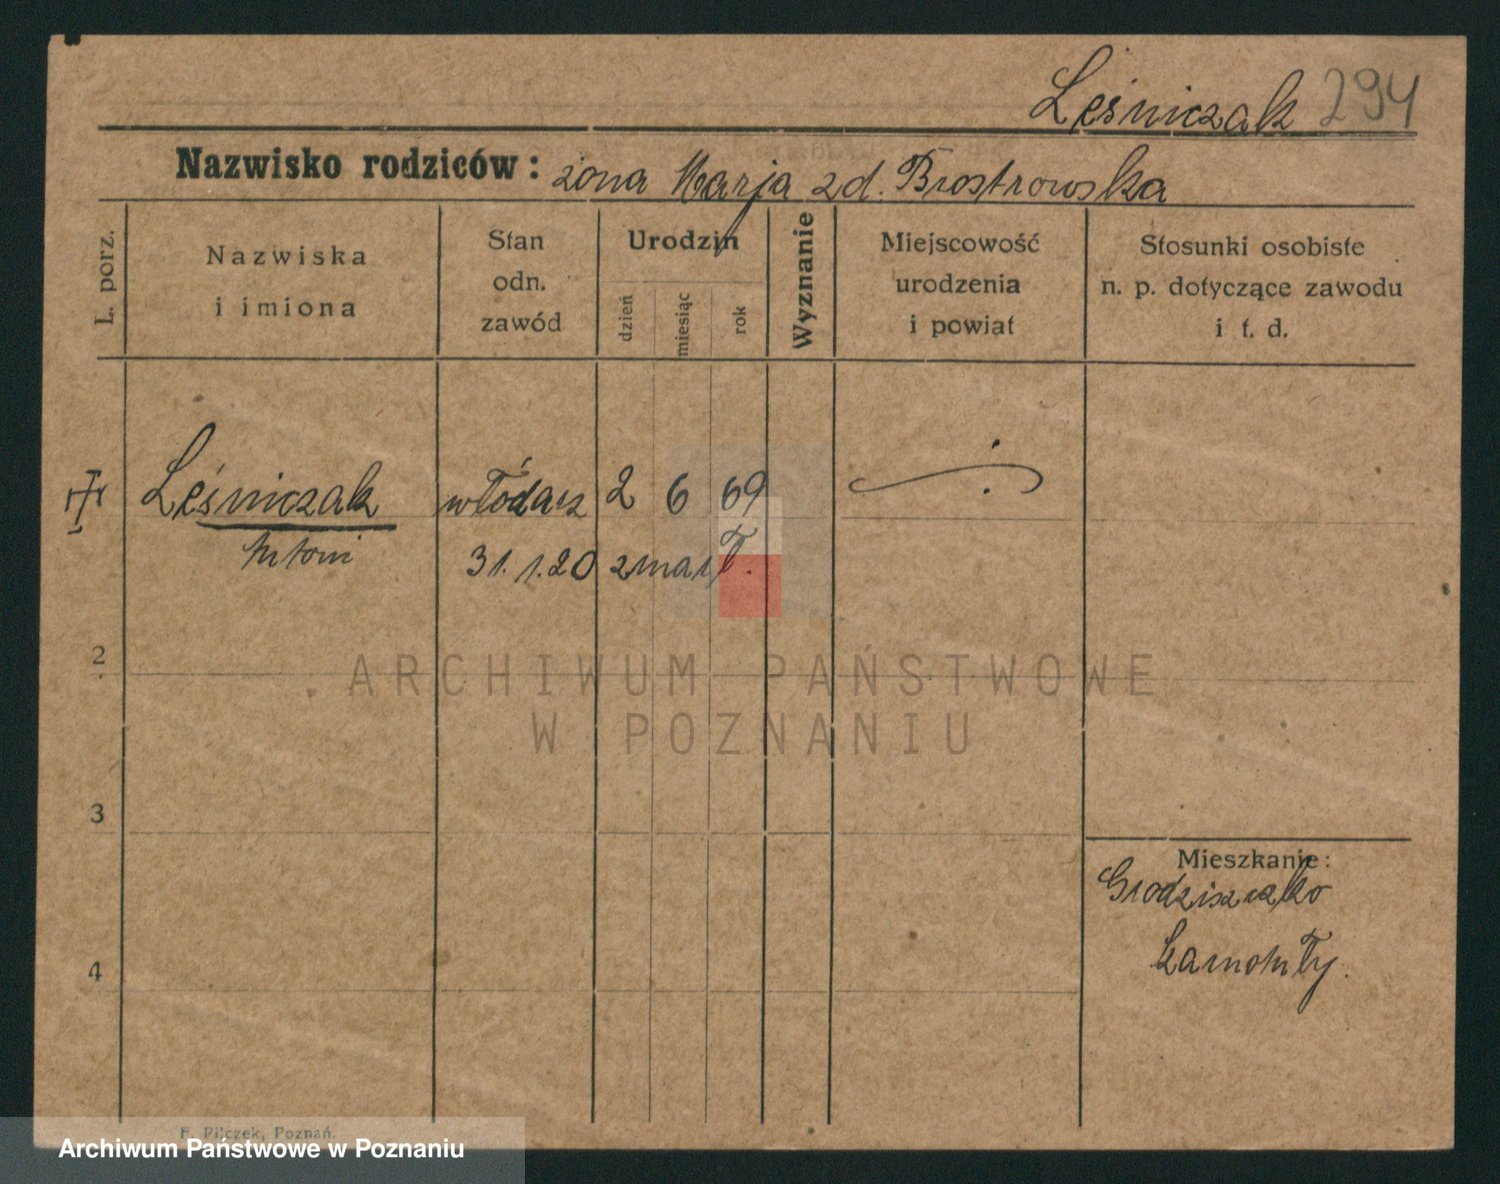 Leśniczak 294
Nazwisko rodziców: żona Marja zd. Brostrowska
L. porz.
Nazwiska
i imiona
Stan
odn.
zawód
Urodzin
dzień
miesiąc
rok
Wyznanie
Miejscowość
urodzenia
i powiat
Stosunki osobiste
n. p. dotyczące zawodu
i t. d.
Leśniczak włódarz 2 6 69
Antoni 31.1.20 zmarł.
2
ARCHIWUM PAŃSTWOWE
W POZNANIU
3
Mieszkanie:
Grodziszczko
4
F. Pilczek, Poznań.
Archiwum Państwowe w Poznaniu